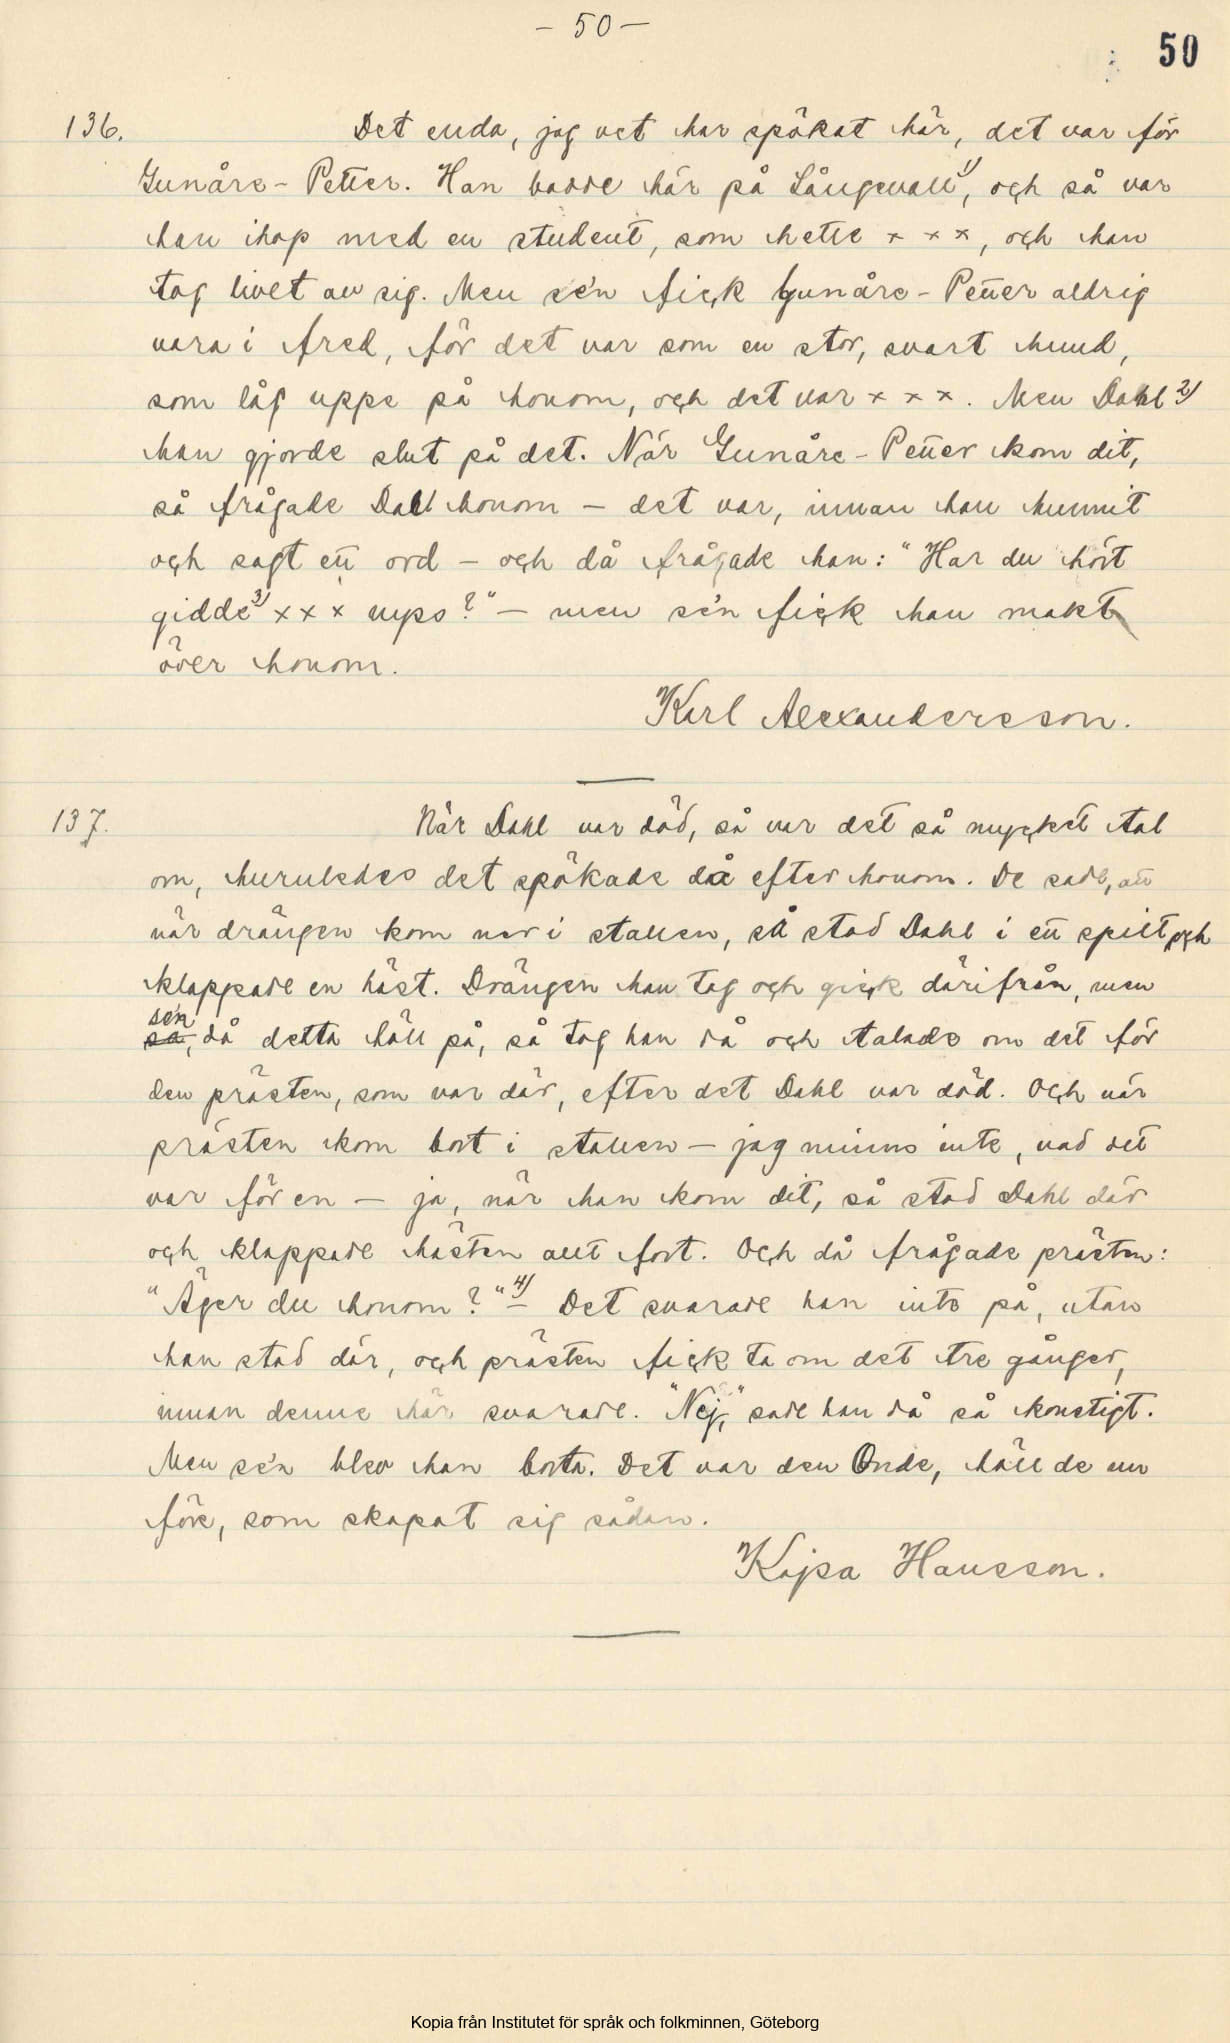 - 50 -
50
136. Det enda, jag vet har spökat här, det var för
Gunåre-Petter. Han bodde här på Långevall¹⁾, och så var
han ihop med en student, som hette x x x, och han
tog livet av sig. Men se'n fick Gunåre-Petter aldrig
vara i fred, för det var som en stor, svart hund,
som låg uppe på honom, och det var x x x. Men Dahl²⁾
han gjorde slut på det. När Gunåre-Petter kom dit,
så frågade Dahl honom - det var, innan han hunnit
och sagt ett ord - och då frågade han: "Har du hört
gidde³⁾ x x x nyss?" - men se'n fick han makt
över honom.
Karl Alexandersson.
137. När Dahl var död, så var det så mycket tal
om, huruledes det spökade då efter honom. De sade, att
när drängen kom ner i stallen, så stod Dahl i ett spilt och
klappade en häst. Drängen han tog och gick därifrån, men
se'n
så, då detta höll på, så tog han då och talade om det för
den prästen, som var där, efter det Dahl var död. Och när
prästen kom bort i stallen - jag minns inte, vad det
var för en - ja, när han kom dit, så stod Dahl där
och klappade hästen allt fort. Och då frågade prästen:
"Äger du honom?"⁴⁾ - Det svarade han inte på, utan
han stod där, och prästen fick ta om det tre gånger,
innan denne här svarade. "Nej," sade han då så konstigt.
Men se'n blev han borta. Det var den Onde, höll de nu
före, som skapat sig sådan.
Kajsa Hansson.
Kopia från Institutet för språk och folkminnen, Göteborg